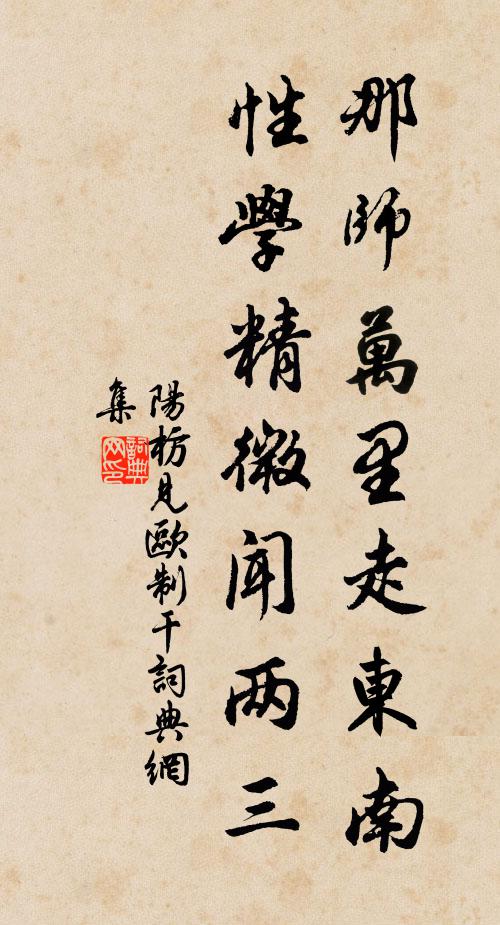 那師萬里走東南
性學精微闻两三
陽枋見歐制干詞典網
集
詞典网印